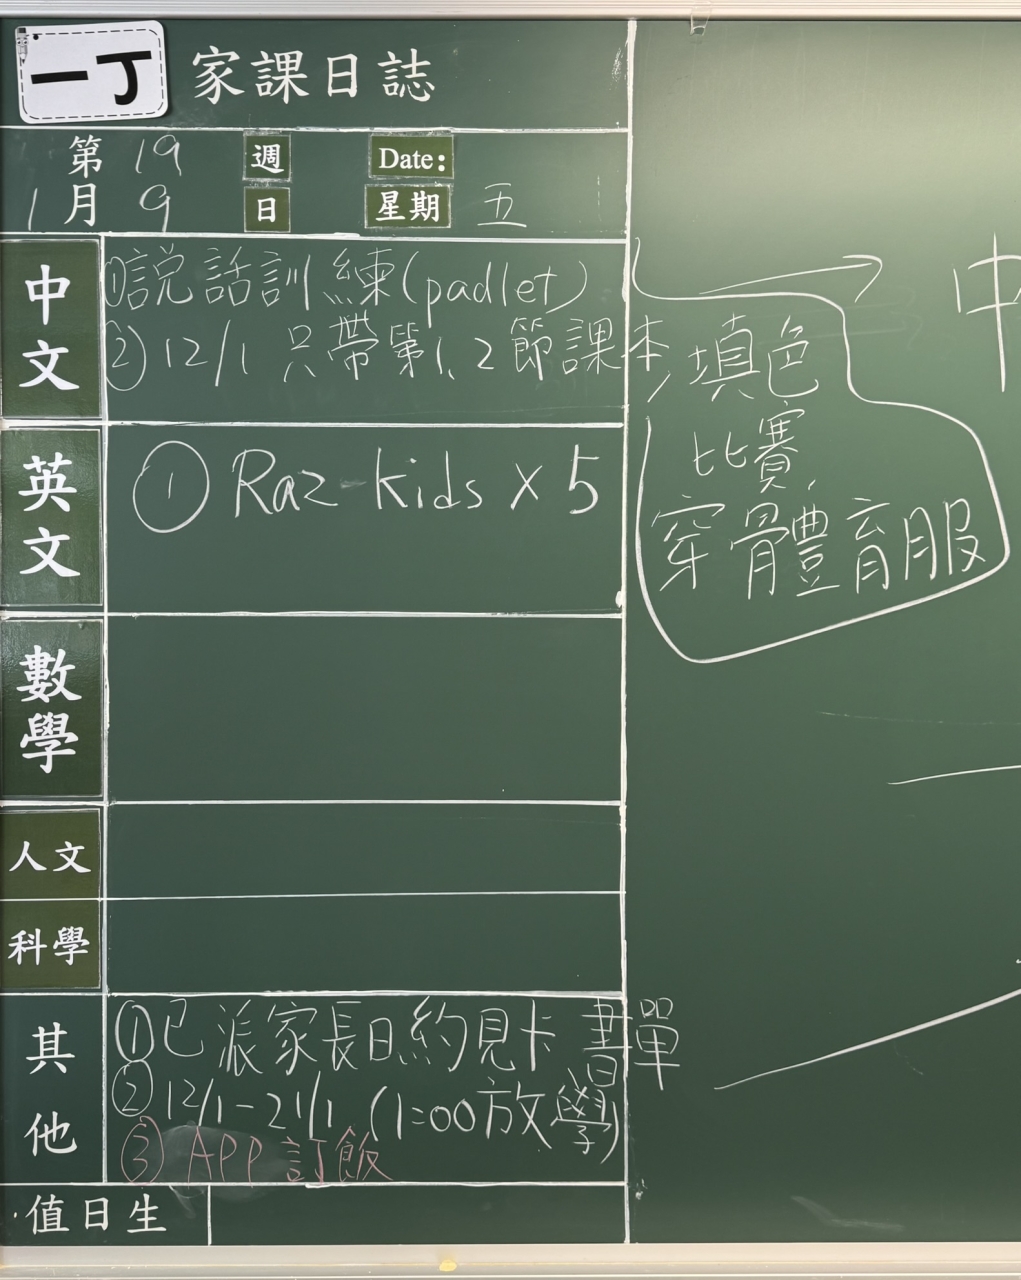 一丁 家課日誌
第 19 週 Date:
1月 9 日 星期 五
中文
①說話訓練(padlet)
②12/1 只帶第1、2節課本,填色
比賽,
穿骨豊育服
中
英文
① Raz-kids x 5
數學
人文
科學
其他
①已派家長日約見卡 書單
②12/1-21/1 (1:00放學)
③ APP訂飯
值日生